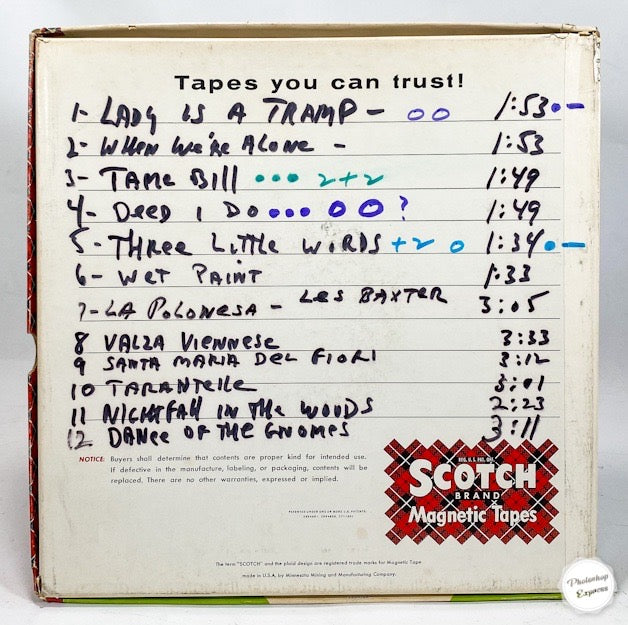 Tapes you can trust!
1- LADY IS A TRAMP - 1:53
2- WHEN WE'RE ALONE - 1:53
3- TAME BILL 2+2 1:49
4- DEED I DO ? 1:49
5- THREE LITTLE WORDS +2 1:34
6- WET PAINT 1:33
7- LA POLONESA - LES BAXTER 3:05
8 VALZA VIENNESE 3:33
9 SANTA MARIA DEL FIORI 3:12
10 TARANTELLE 3:01
11 NIGHTFALL IN THE WOODS 2:23
12 DANCE OF THE GNOMES 3:11
NOTICE: Buyers shall determine that contents are proper kind for intended use.
If defective in the manufacture, labeling, or packaging, contents will be
replaced. There are no other warranties, expressed or implied.
REG. U.S. PAT. OFF.
SCOTCH
BRAND
Magnetic Tapes
The term "SCOTCH" and the plaid design are registered trade marks for Magnetic Tape
made in U.S.A. by Minnesota Mining and Manufacturing Company.
Photoshop
Express